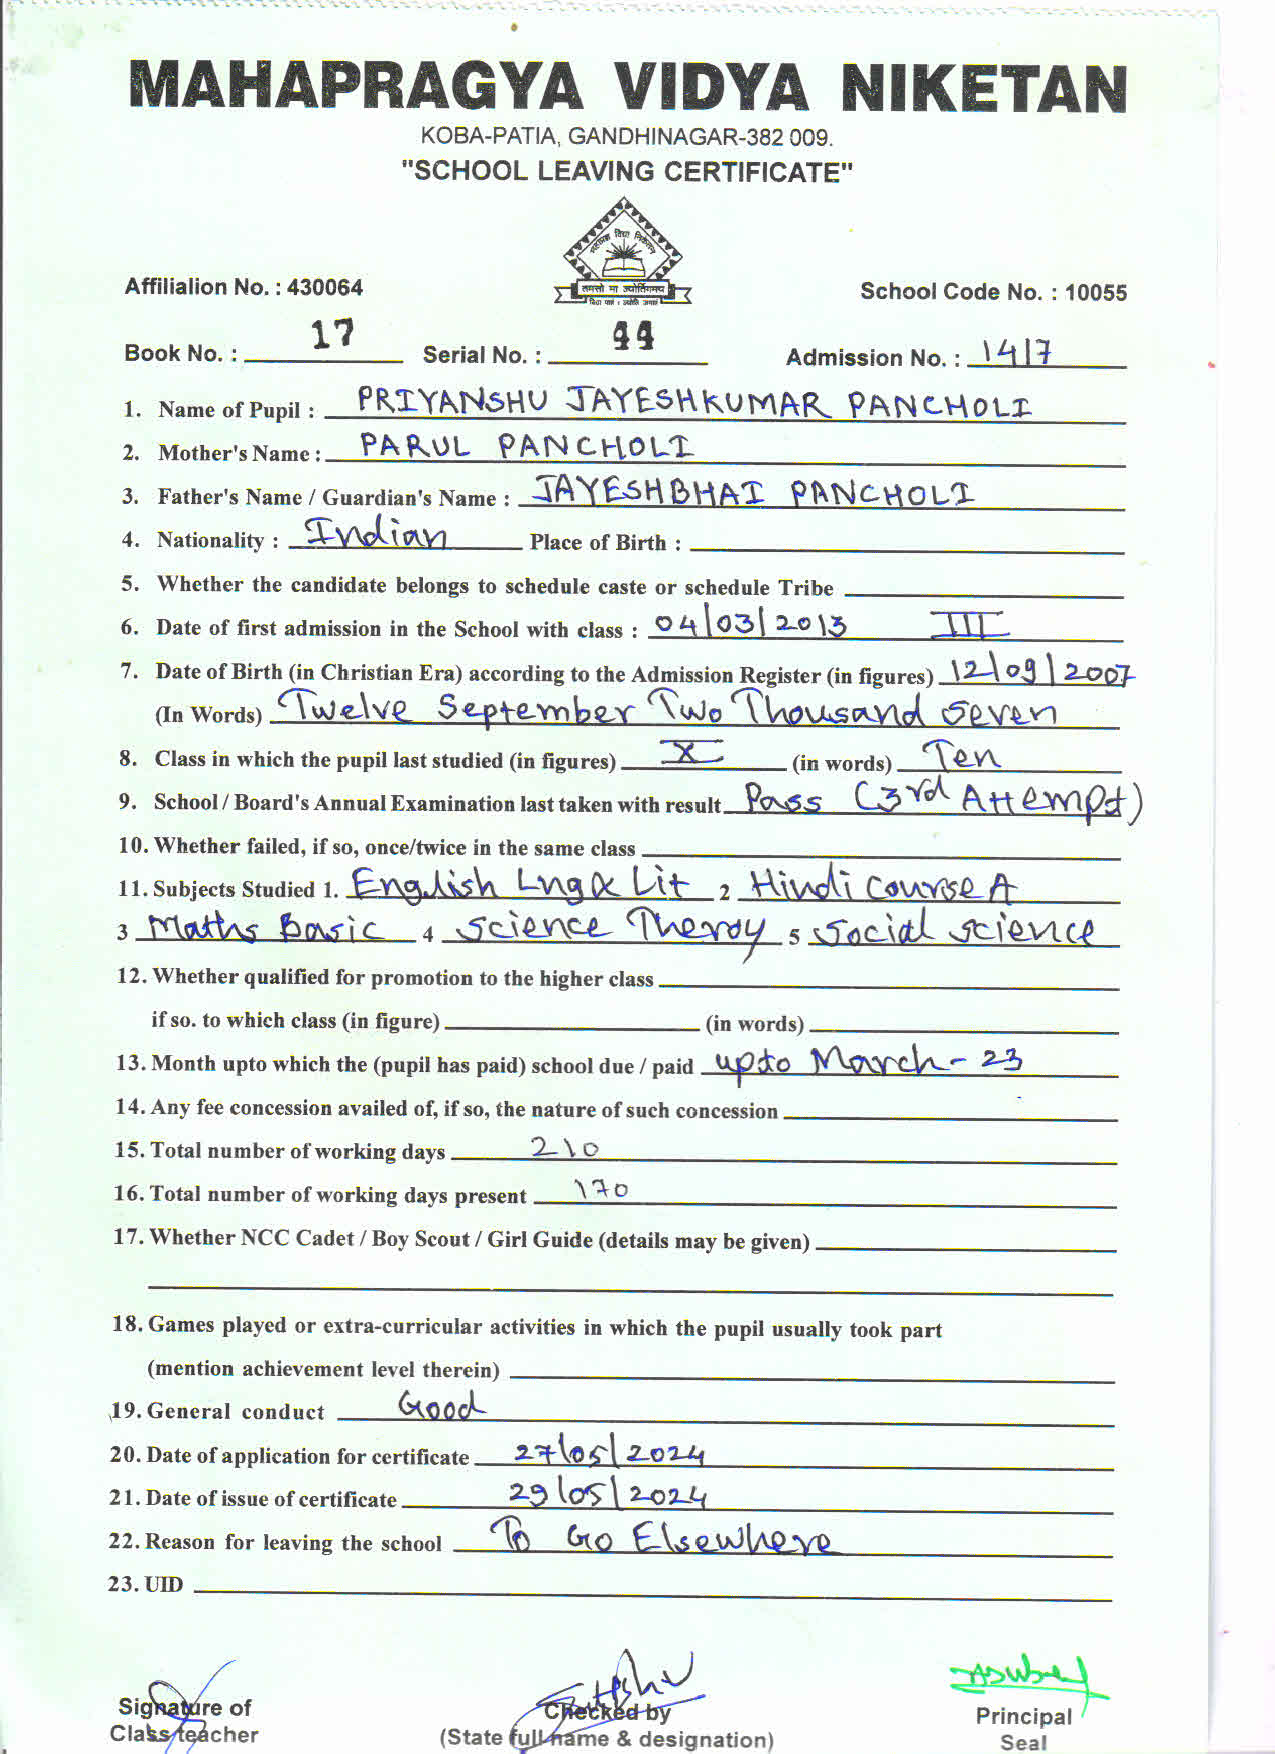 MAHAPRAGYA VIDYA NIKETAN
KOBA-PATIA, GANDHINAGAR-382 009.
"SCHOOL LEAVING CERTIFICATE"
महाप्रज्ञ विद्या निकेतन
तमसो मा ज्योर्तिगमय
Affilialion No. : 430064 School Code No. : 10055
Book No. : 17 Serial No. : 44 Admission No. : 1417
1. Name of Pupil : PRIYANSHU JAYESHKUMAR PANCHOLI
2. Mother's Name : PARUL PANCHOLI
3. Father's Name / Guardian's Name : JAYESHBHAI PANCHOLI
4. Nationality : Indian Place of Birth :
5. Whether the candidate belongs to schedule caste or schedule Tribe
6. Date of first admission in the School with class : 04/03/2013 III
7. Date of Birth (in Christian Era) according to the Admission Register (in figures) 12/09/2007
(In Words) Twelve September Two Thousand Seven
8. Class in which the pupil last studied (in figures) X (in words) Ten
9. School / Board's Annual Examination last taken with result Pass (3rd Attempt)
10. Whether failed, if so, once/twice in the same class
11. Subjects Studied 1. English Lng & Lit 2 Hindi Course A
3 Maths Basic 4 Science Theroy 5 Social Science
12. Whether qualified for promotion to the higher class
if so. to which class (in figure) (in words)
13. Month upto which the (pupil has paid) school due / paid upto March - 23
14. Any fee concession availed of, if so, the nature of such concession
15. Total number of working days 210
16. Total number of working days present 170
17. Whether NCC Cadet / Boy Scout / Girl Guide (details may be given)
18. Games played or extra-curricular activities in which the pupil usually took part
(mention achievement level therein)
19. General conduct Good
20. Date of application for certificate 27/05/2024
21. Date of issue of certificate 29/05/2024
22. Reason for leaving the school To Go Elsewhere
23. UID
Signature of Checked by Principal
Class teacher (State full name & designation) Seal